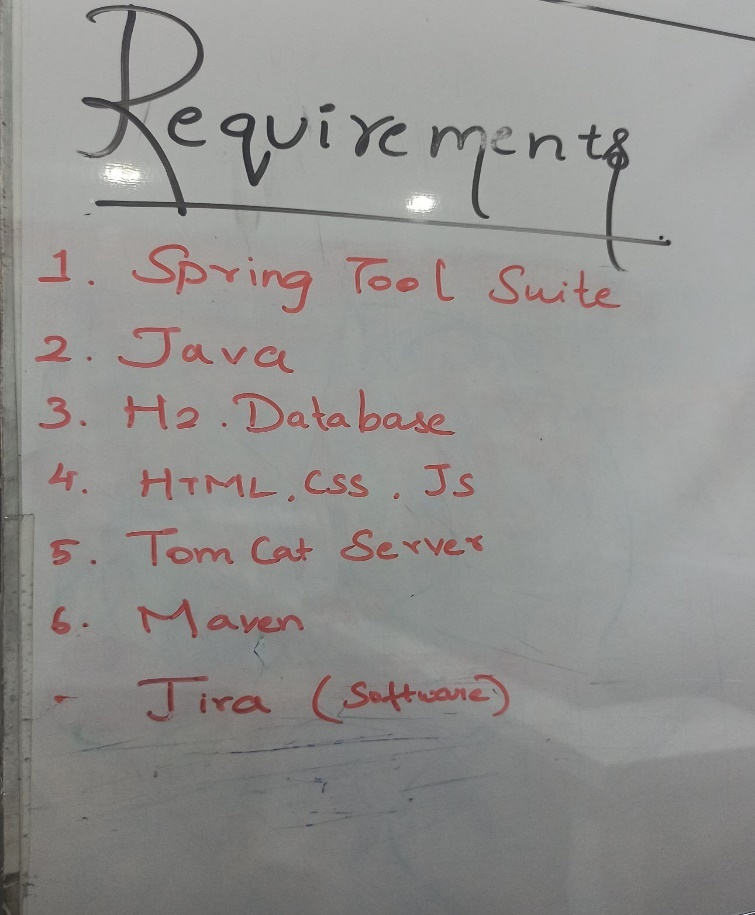 Requirements
1. Spring Tool Suite
2. Java
3. H2. Database
4. HTML, CSS, JS
5. Tom Cat Server
6. Maven
- Jira (Software)